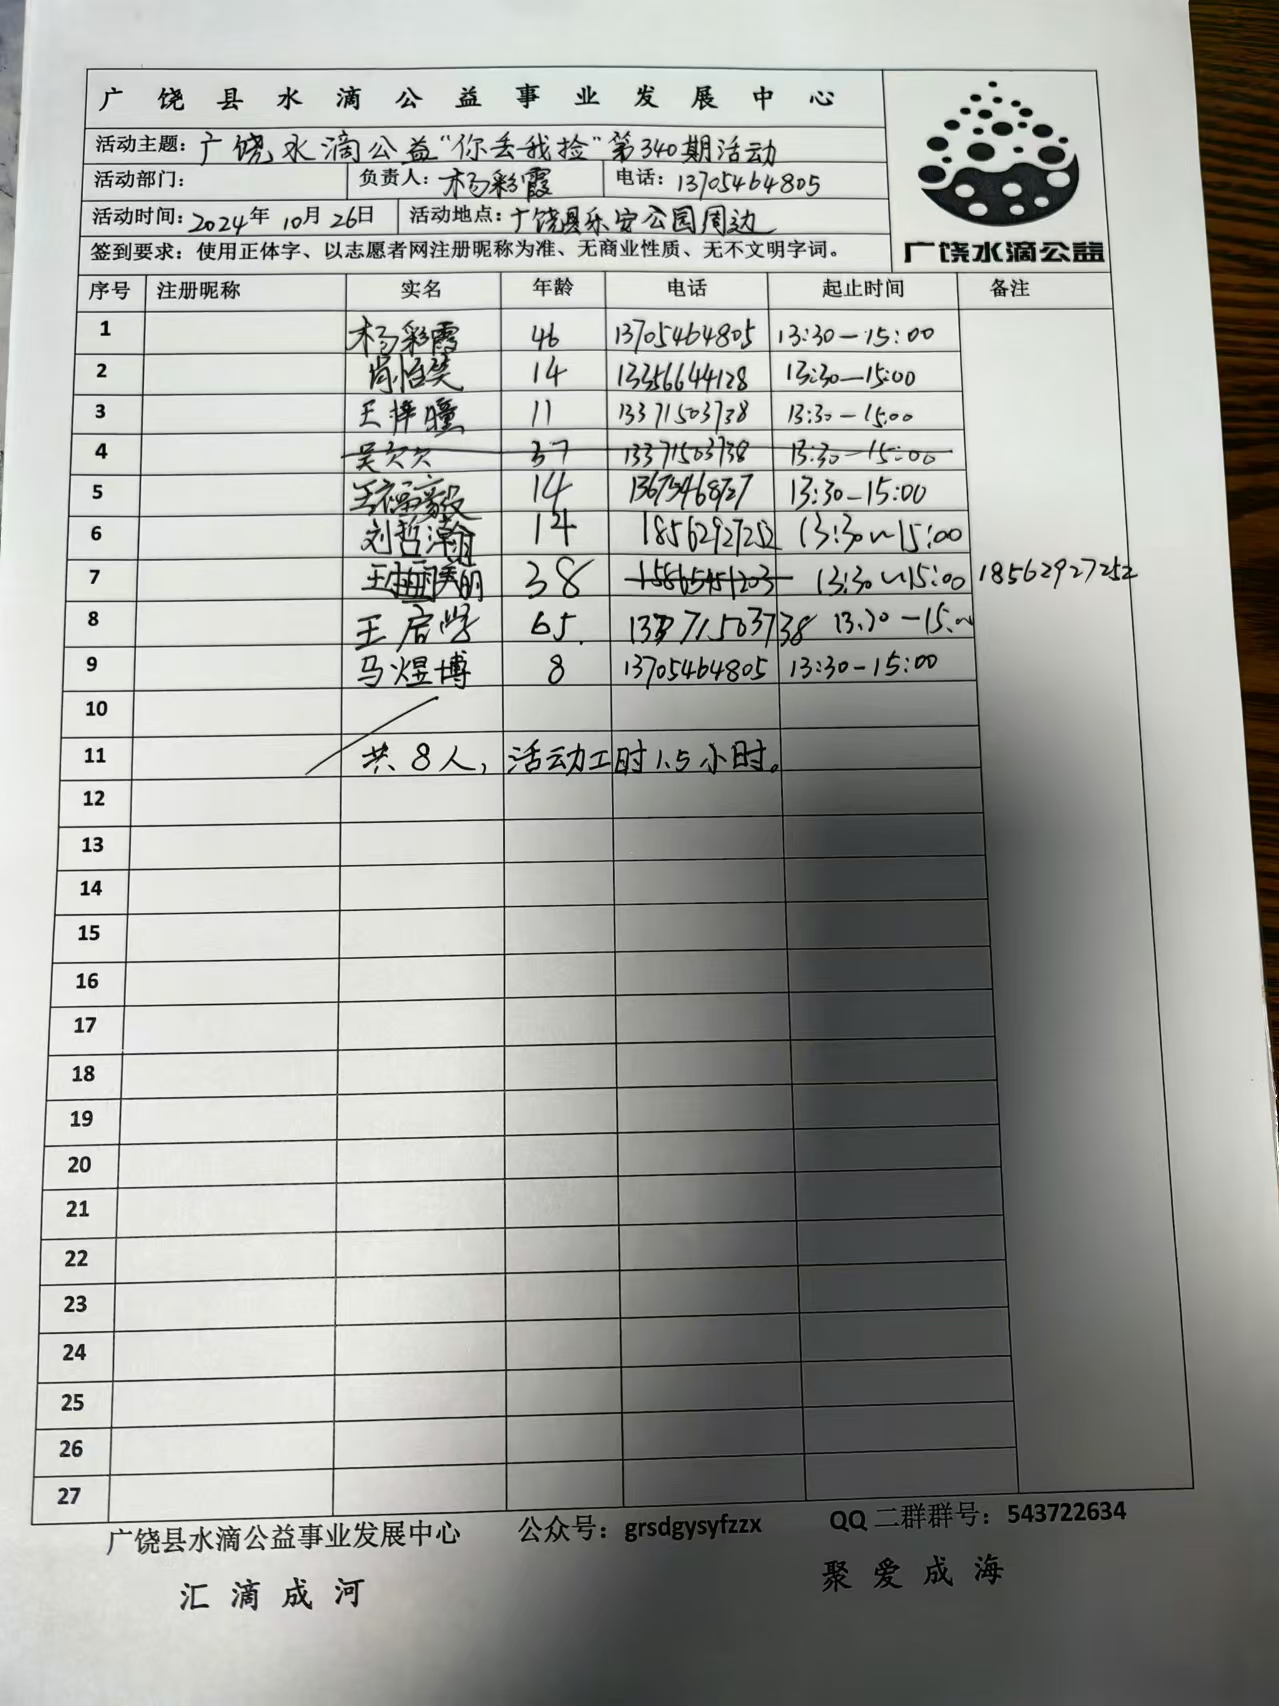 广饶县水滴公益事业发展中心
活动主题：广饶水滴公益“你丢我捡”第340期活动
活动部门： 负责人：杨彩霞 电话：13705464805
活动时间：2024年10月26日 活动地点：广饶县乐安公园周边
签到要求：使用正体字、以志愿者网注册昵称为准、无商业性质、无不文明字词。
广饶水滴公益
序号 注册昵称 实名 年龄 电话 起止时间 备注
1 杨彩霞 46 13705464805 13:30-15:00
2 肖怡笑 14 13356644128 13:30-15:00
3 王梓瞳 11 13371503738 13:30-15:00
4 吴欠欠 37 13371503738 13:30-15:00
5 14 13675468727 13:30-15:00
6 刘哲瀚 14 18562927252 13:30~15:00
7 38 15865451203 13:30~15:00 18562927252
8 王启学 65 13371503738 13:30-15:00
9 马煜博 8 13705464805 13:30-15:00
10
11 共8人，活动工时1.5小时。
12
13
14
15
16
17
18
19
20
21
22
23
24
25
26
27
广饶县水滴公益事业发展中心 公众号：grsdgysyfzzx QQ二群群号：543722634
汇滴成河 聚爱成海